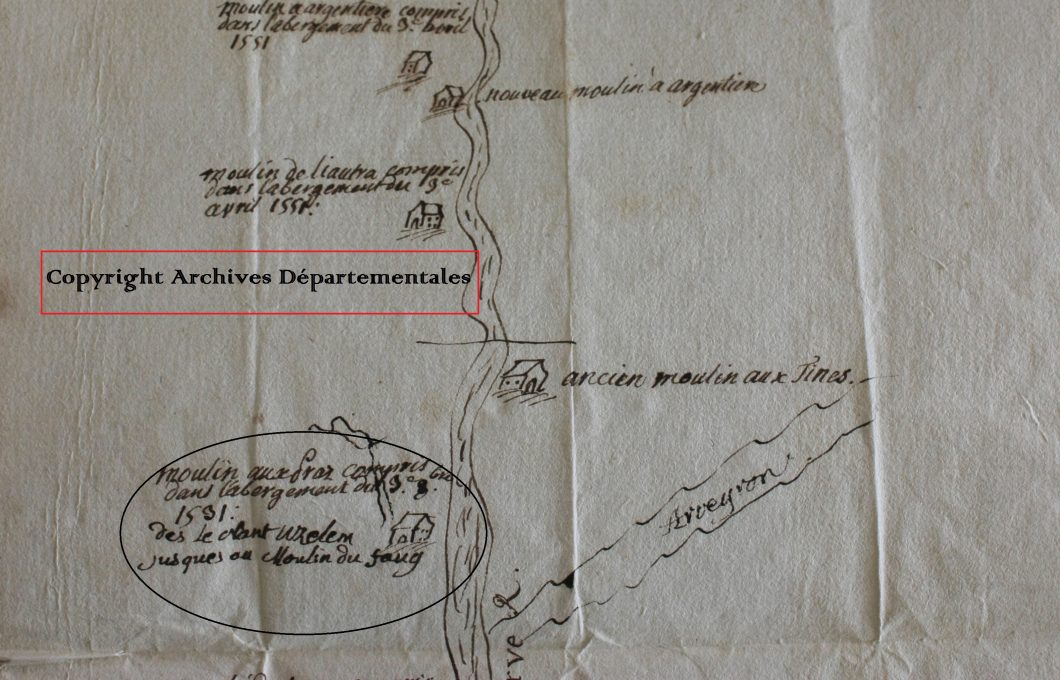 moulin a argentiere compris
dans labergement du 3.e avril
1551
nouveau moulin à argentiere
moulin de liautra compris
dans labergement du 3e
avril 1551.
Copyright Archives Départementales
ancien moulin aux Tines.
moulin aux Praz compris
dans labergement du 9.e 8.bre
1531.
des Le Nant
jusques au Moulin du foug
Arveyron